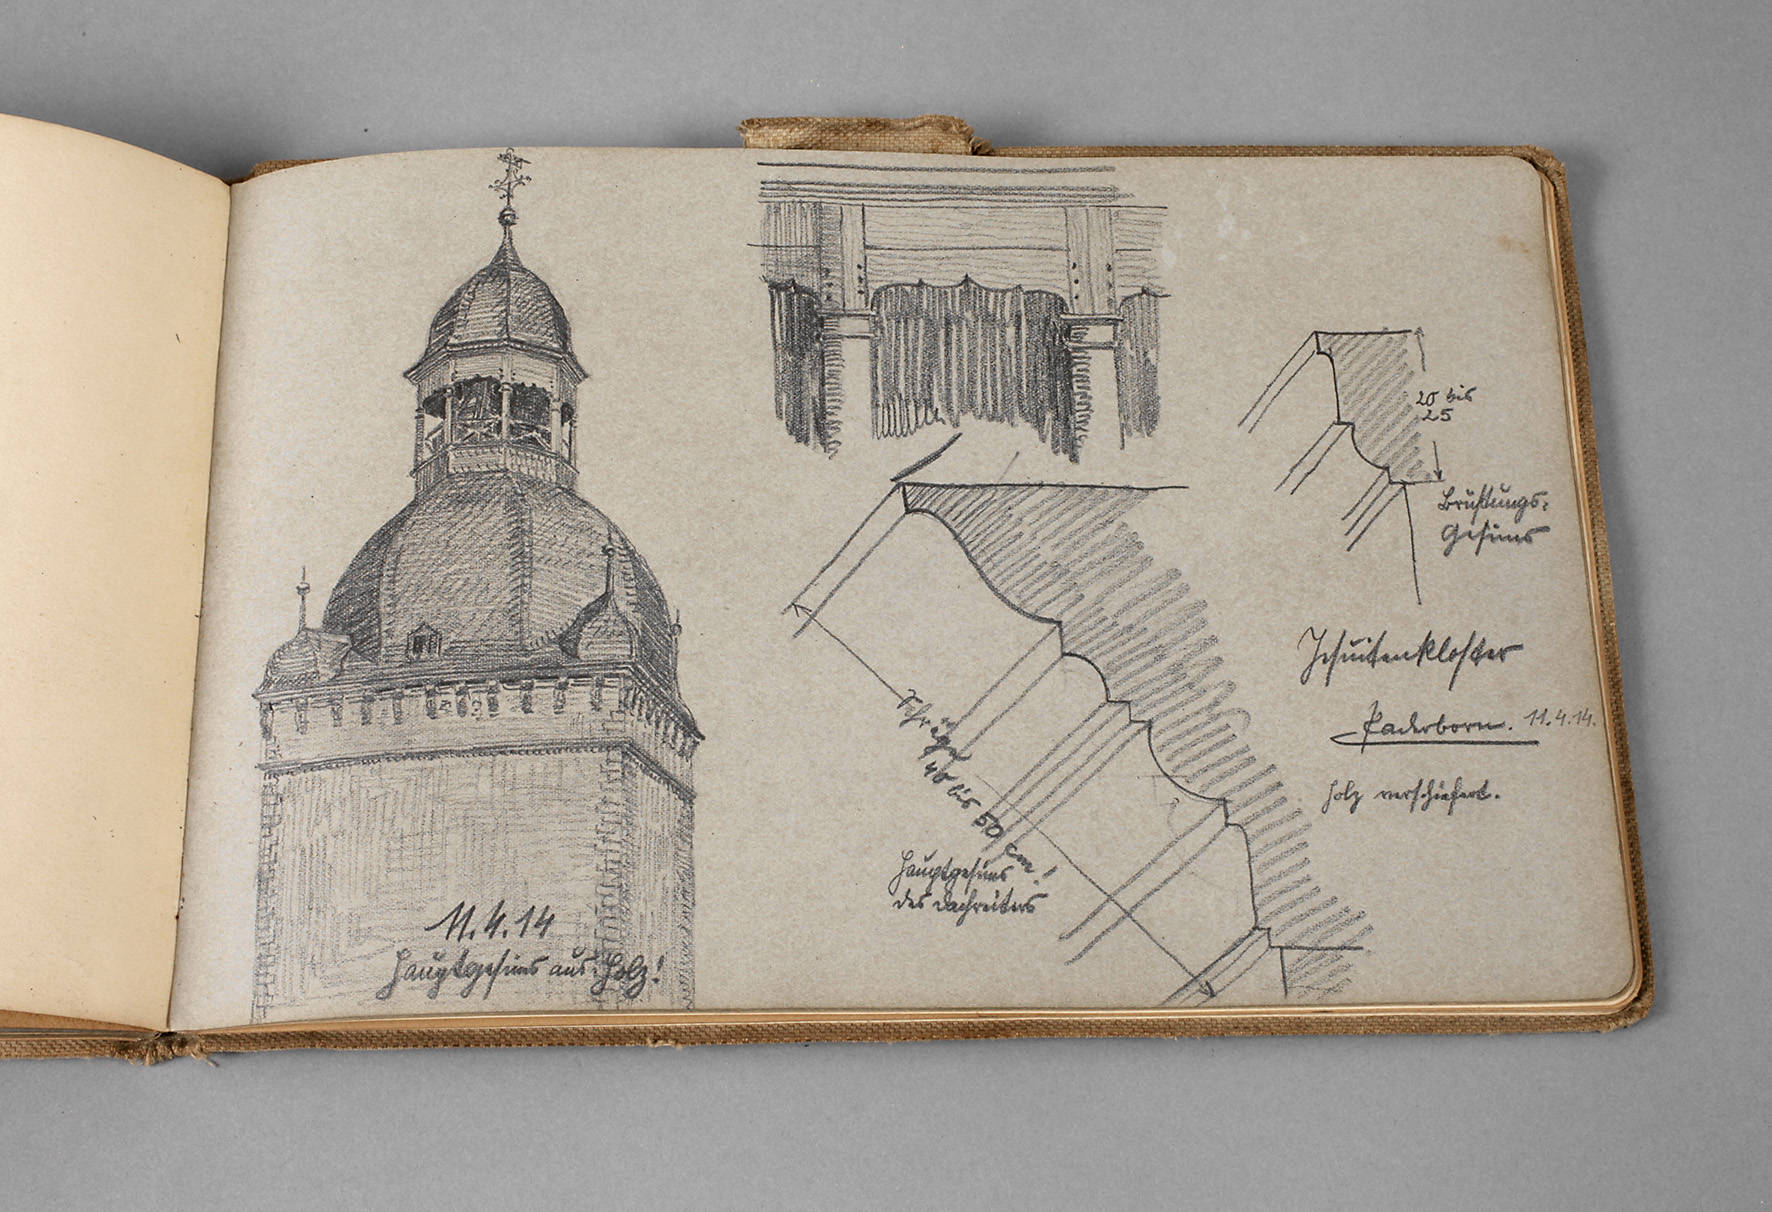 11.4.14
Hauptgesims aus Holz!
Schräge
40 bis 50 cm!
Hauptgesims
des Dachreiters
20 bis
25
Brüstungs=
Gesims
Jesuitenkloster
Paderborn. 11.4.14.
Holz verschiefert.